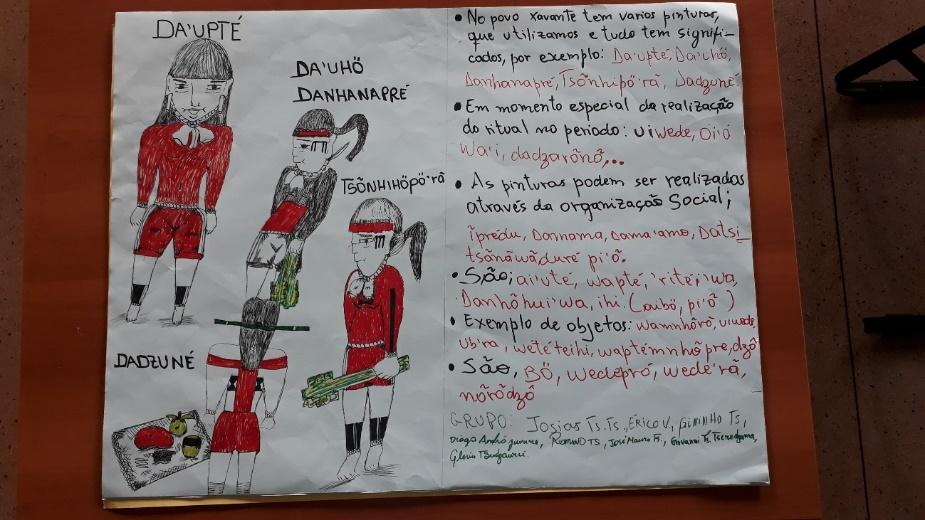 DA'UPTÉ
DA'UHÖ
DANHANAPRÉ
TSÕNHIHÖPÖ'RÃ
DADZUNÉ
• No povo xavante tem varios pinturas,
que utilizamos e tudo tem signifi-
cados, por exemplo: Da'upté, Da'uhö,
Danhanapré, Tsõnhipö'rã, Dadzuné
• Em momento especial da realização
do ritual no periodo: uiwede, Oi'ó
Wa'i, dadzarõnõ,...
• As pinturas podem ser realizadas
através da organização Social;
ĩpredu, Dannama, Dama'amo, Datsi_
tsãnãwãduré pi'õ.
• São; ai'uté, wapté, 'ritéi'wa,
Danhõhui'wa, ihi (aibö, pi'õ)
• Exemplo de objetos: wamnhõrõ, uiwede,
ub'ra, wetéteihi, waptémnhõ pre, dzô
• São, BÖ, wedepró, wede'rã,
nõrõdzô
GRUPO: Josias Ts.Ts., ERICO V., GININHO Ts,
Diogo André, ROMANO TS, José Mauro Ts., Giovanni Ts.
Gloria